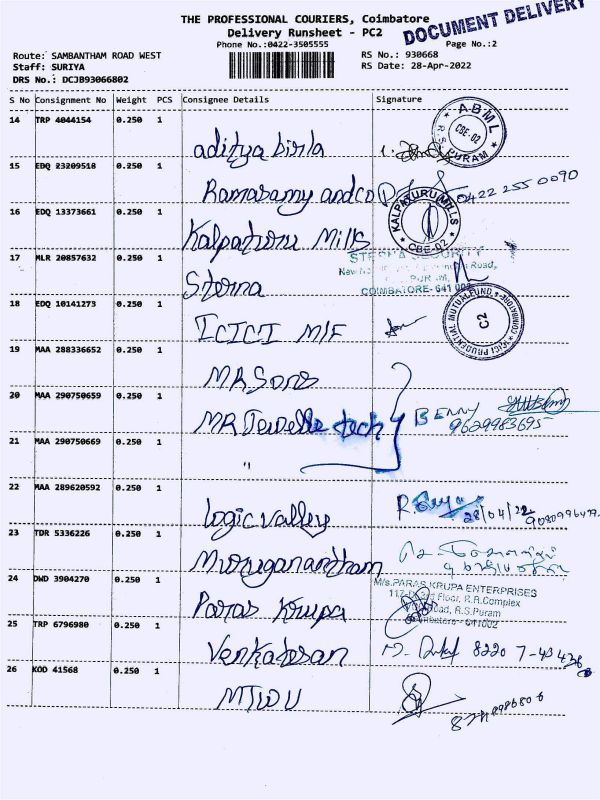 THE PROFESSIONAL COURIERS, Coimbatore
DOCUMENT DELIVERY
Delivery Runsheet - PC2
Phone No.:0422-3505555
Page No.:2
Route: SAMBANTHAM ROAD WEST
RS No.: 930668
Staff: SURIYA
RS Date: 28-Apr-2022
DRS No.: DCJB93066802
S No Consignment No Weight PCS Consignee Details Signature
14 TRP 4044154 0.250 1
aditya birla
ABML
R.S. PURAM
CBE-02
15 EDQ 23209518 0.250 1
Ramasamy andco
0422 255 0090
16 EDQ 13373661 0.250 1
Kalpaturu Mills
KALPATURU MILLS
CBE-02
17 MLR 20857632 0.250 1
Sterna
STERNA SECURITY
Road,
COIMBATORE- 641 002
18 EDQ 10141273 0.250 1
ICICI M/F
ICICI PRUDENTIAL MUTUAL FUND, COIMBATORE
C2
19 MAA 288336652 0.250 1
MR Sons
20 MAA 290750659 0.250 1
MR Jewelle tech
BENNY
9629983695
21 MAA 290750669 0.250 1
"
22 MAA 289620592 0.250 1
logic valley
28/04/22
23 TDR 5336226 0.250 1
Muruganantham
24 DWD 3904270 0.250 1
Paras Krupa
M/s.PARAS KRUPA ENTERPRISES
Floor, R.R.Complex
Road, R.S.Puram
Coimbatore- 641002
25 TRP 6796980 0.250 1
Venkatesan
8220 7-43
26 KOD 41568 0.250 1